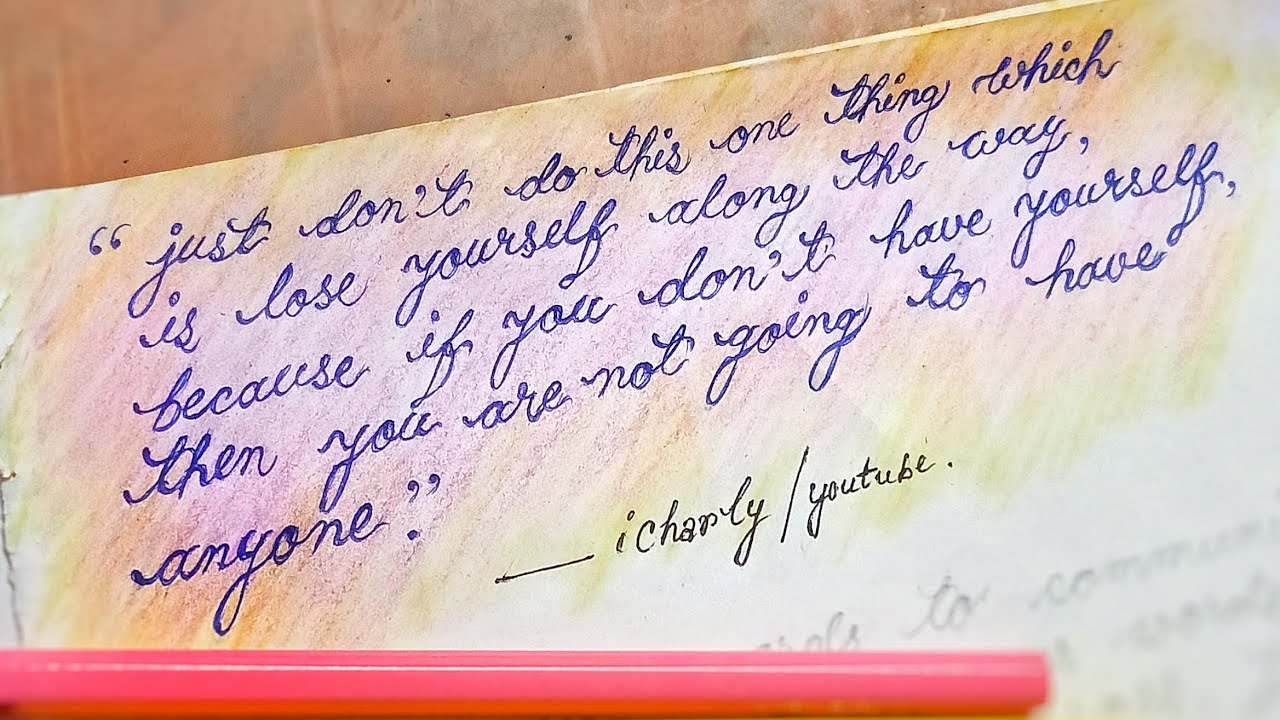 “ just don't do this one thing which
is lose yourself along the way,
because if you don't have yourself,
then you are not going to have
anyone.”
__ icharly/youtube.
to